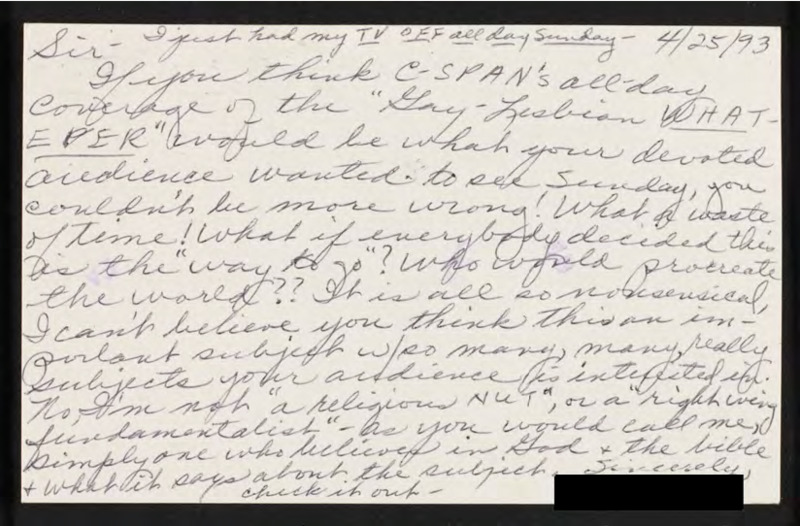 I just had my TV OFF all day Sunday - 4/25/93
Sir-
If you think C-SPAN's all-day
coverage of the "Gay-Lesbian WHAT-
EVER" would be what your devoted
audience wanted to see Sunday, you
couldn't be more wrong! What a waste
of time! What if everybody decided this
is the "way to go"? Who would procreate
the world?? It is all so nonsensical,
I can't believe you think this an im-
portant subject w/so many, many, really
subjects your audience is interested in.
No, I'm not "a religious NUT", or a "right wing
fundamentalist" - as you would call me,
simply one who believes in God + the bible
+ what it says about the subject. Sincerely,
check it out -